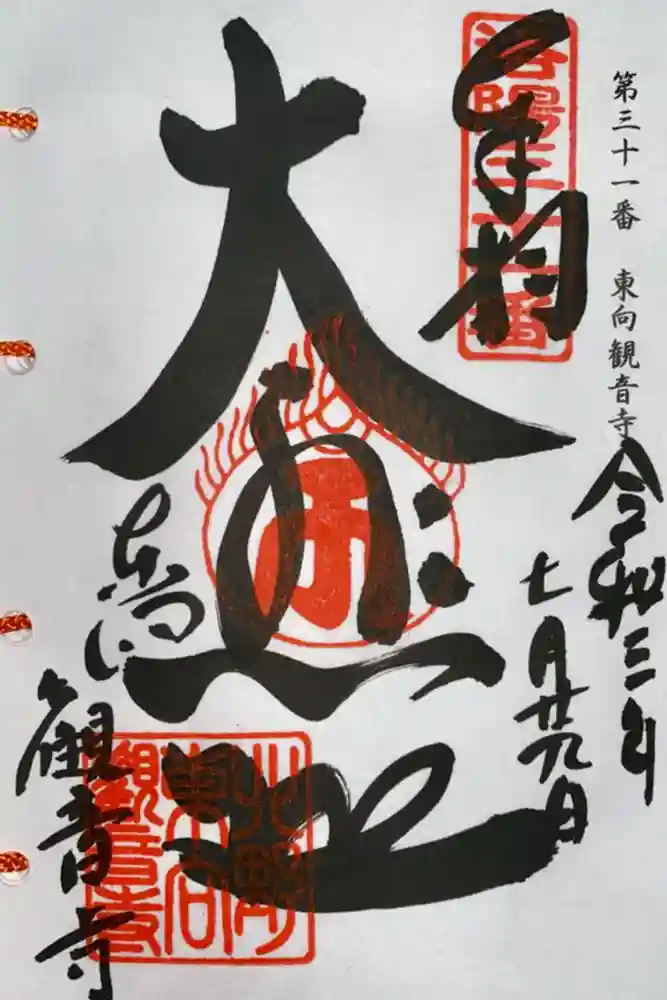 第三十一番　東向観音寺
令和三年
七月廿九日
奉拝
洛陽三十一番
大悲殿
東向
観音寺
北野
東向
観音寺